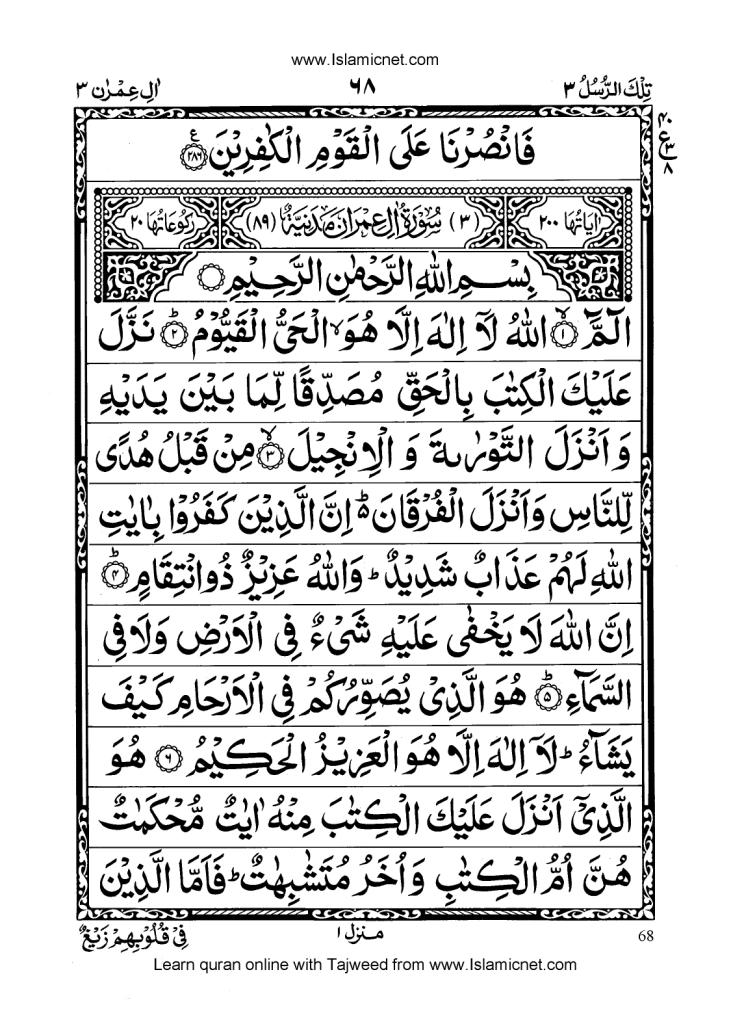 www.Islamicnet.com
تِلْكَ الرُّسُلُ ٣
٦٨
اٰلِ عِمْرٰن ٣
فَانْصُرْنَا عَلَى الْقَوْمِ الْكٰفِرِيْنَ ع ﴿٢٨٦﴾
٤٠ ع ٣ ٨
اٰيَاتُهَا ٢٠٠
(٣) سُوْرَةُ اٰلِ عِمْرَانَ مَدَنِيَّةٌ (٨٩)
رُكُوْعَاتُهَا ٢٠
بِسْمِ اللّٰهِ الرَّحْمٰنِ الرَّحِيْمِ
الٓمَّٓ ۙ﴿١﴾ اللّٰهُ لَاۤ اِلٰهَ اِلَّا هُوَ ۙ الْحَيُّ الْقَيُّوْمُ ؕ﴿٢﴾ نَزَّلَ
عَلَيْكَ الْكِتٰبَ بِالْحَقِّ مُصَدِّقًا لِّمَا بَيْنَ يَدَيْهِ
وَ اَنْزَلَ التَّوْرٰىةَ وَ الْاِنْجِيْلَ ۙ﴿٣﴾ مِنْ قَبْلُ هُدًى
لِّلنَّاسِ وَ اَنْزَلَ الْفُرْقَانَ ۬ؕ اِنَّ الَّذِيْنَ كَفَرُوْا بِاٰيٰتِ
اللّٰهِ لَهُمْ عَذَابٌ شَدِيْدٌ ؕ وَاللّٰهُ عَزِيْزٌ ذُو انْتِقَامٍ ؕ﴿٤﴾
اِنَّ اللّٰهَ لَا يَخْفٰى عَلَيْهِ شَيْءٌ فِي الْاَرْضِ وَلَا فِي
السَّمَآءِ ؕ﴿٥﴾ هُوَ الَّذِيْ يُصَوِّرُكُمْ فِي الْاَرْحَامِ كَيْفَ
يَشَآءُ ؕ لَاۤ اِلٰهَ اِلَّا هُوَ الْعَزِيْزُ الْحَكِيْمُ ﴿٦﴾ هُوَ
الَّذِيْۤ اَنْزَلَ عَلَيْكَ الْكِتٰبَ مِنْهُ اٰيٰتٌ مُّحْكَمٰتٌ
هُنَّ اُمُّ الْكِتٰبِ وَ اُخَرُ مُتَشٰبِهٰتٌ ؕ فَاَمَّا الَّذِيْنَ
68
منزل ١
فِيْ قُلُوْبِهِمْ زَيْغٌ
Learn quran online with Tajweed from www.Islamicnet.com